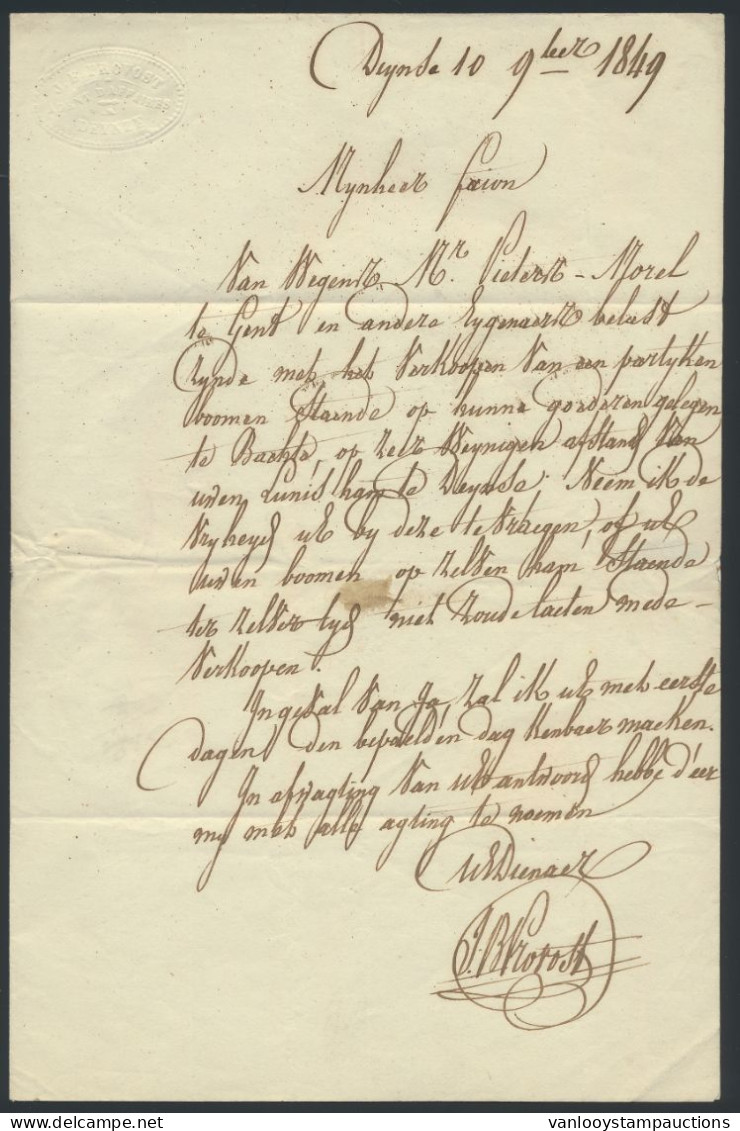 Deynse 10 9ber 1849
Mynheer
Van Wegens Mr. Pieters-Morel
te Gent en andere Eygenaers belast
zynde met het verkoopen van een partyken
boomen staende op hunne goederen gelegen
te Bachte, op zeer weynigen afstand van
uwen ham te Deynse. Neem ik de
vryheyd UE by deze te vraegen, of UE
uwen boomen op zelven ham staende
ter zelver tyd niet zoude laeten mede-
verkoopen.
Ingeval van Ja, zal ik UE met eerste
dagen den bepaelden dag kenbaer maeken.
In afwagting van UE antwoord hebbe d'eer
my met alle agting te noemen
UE Dienaer
J. B. Provost
vanlooystampauctions